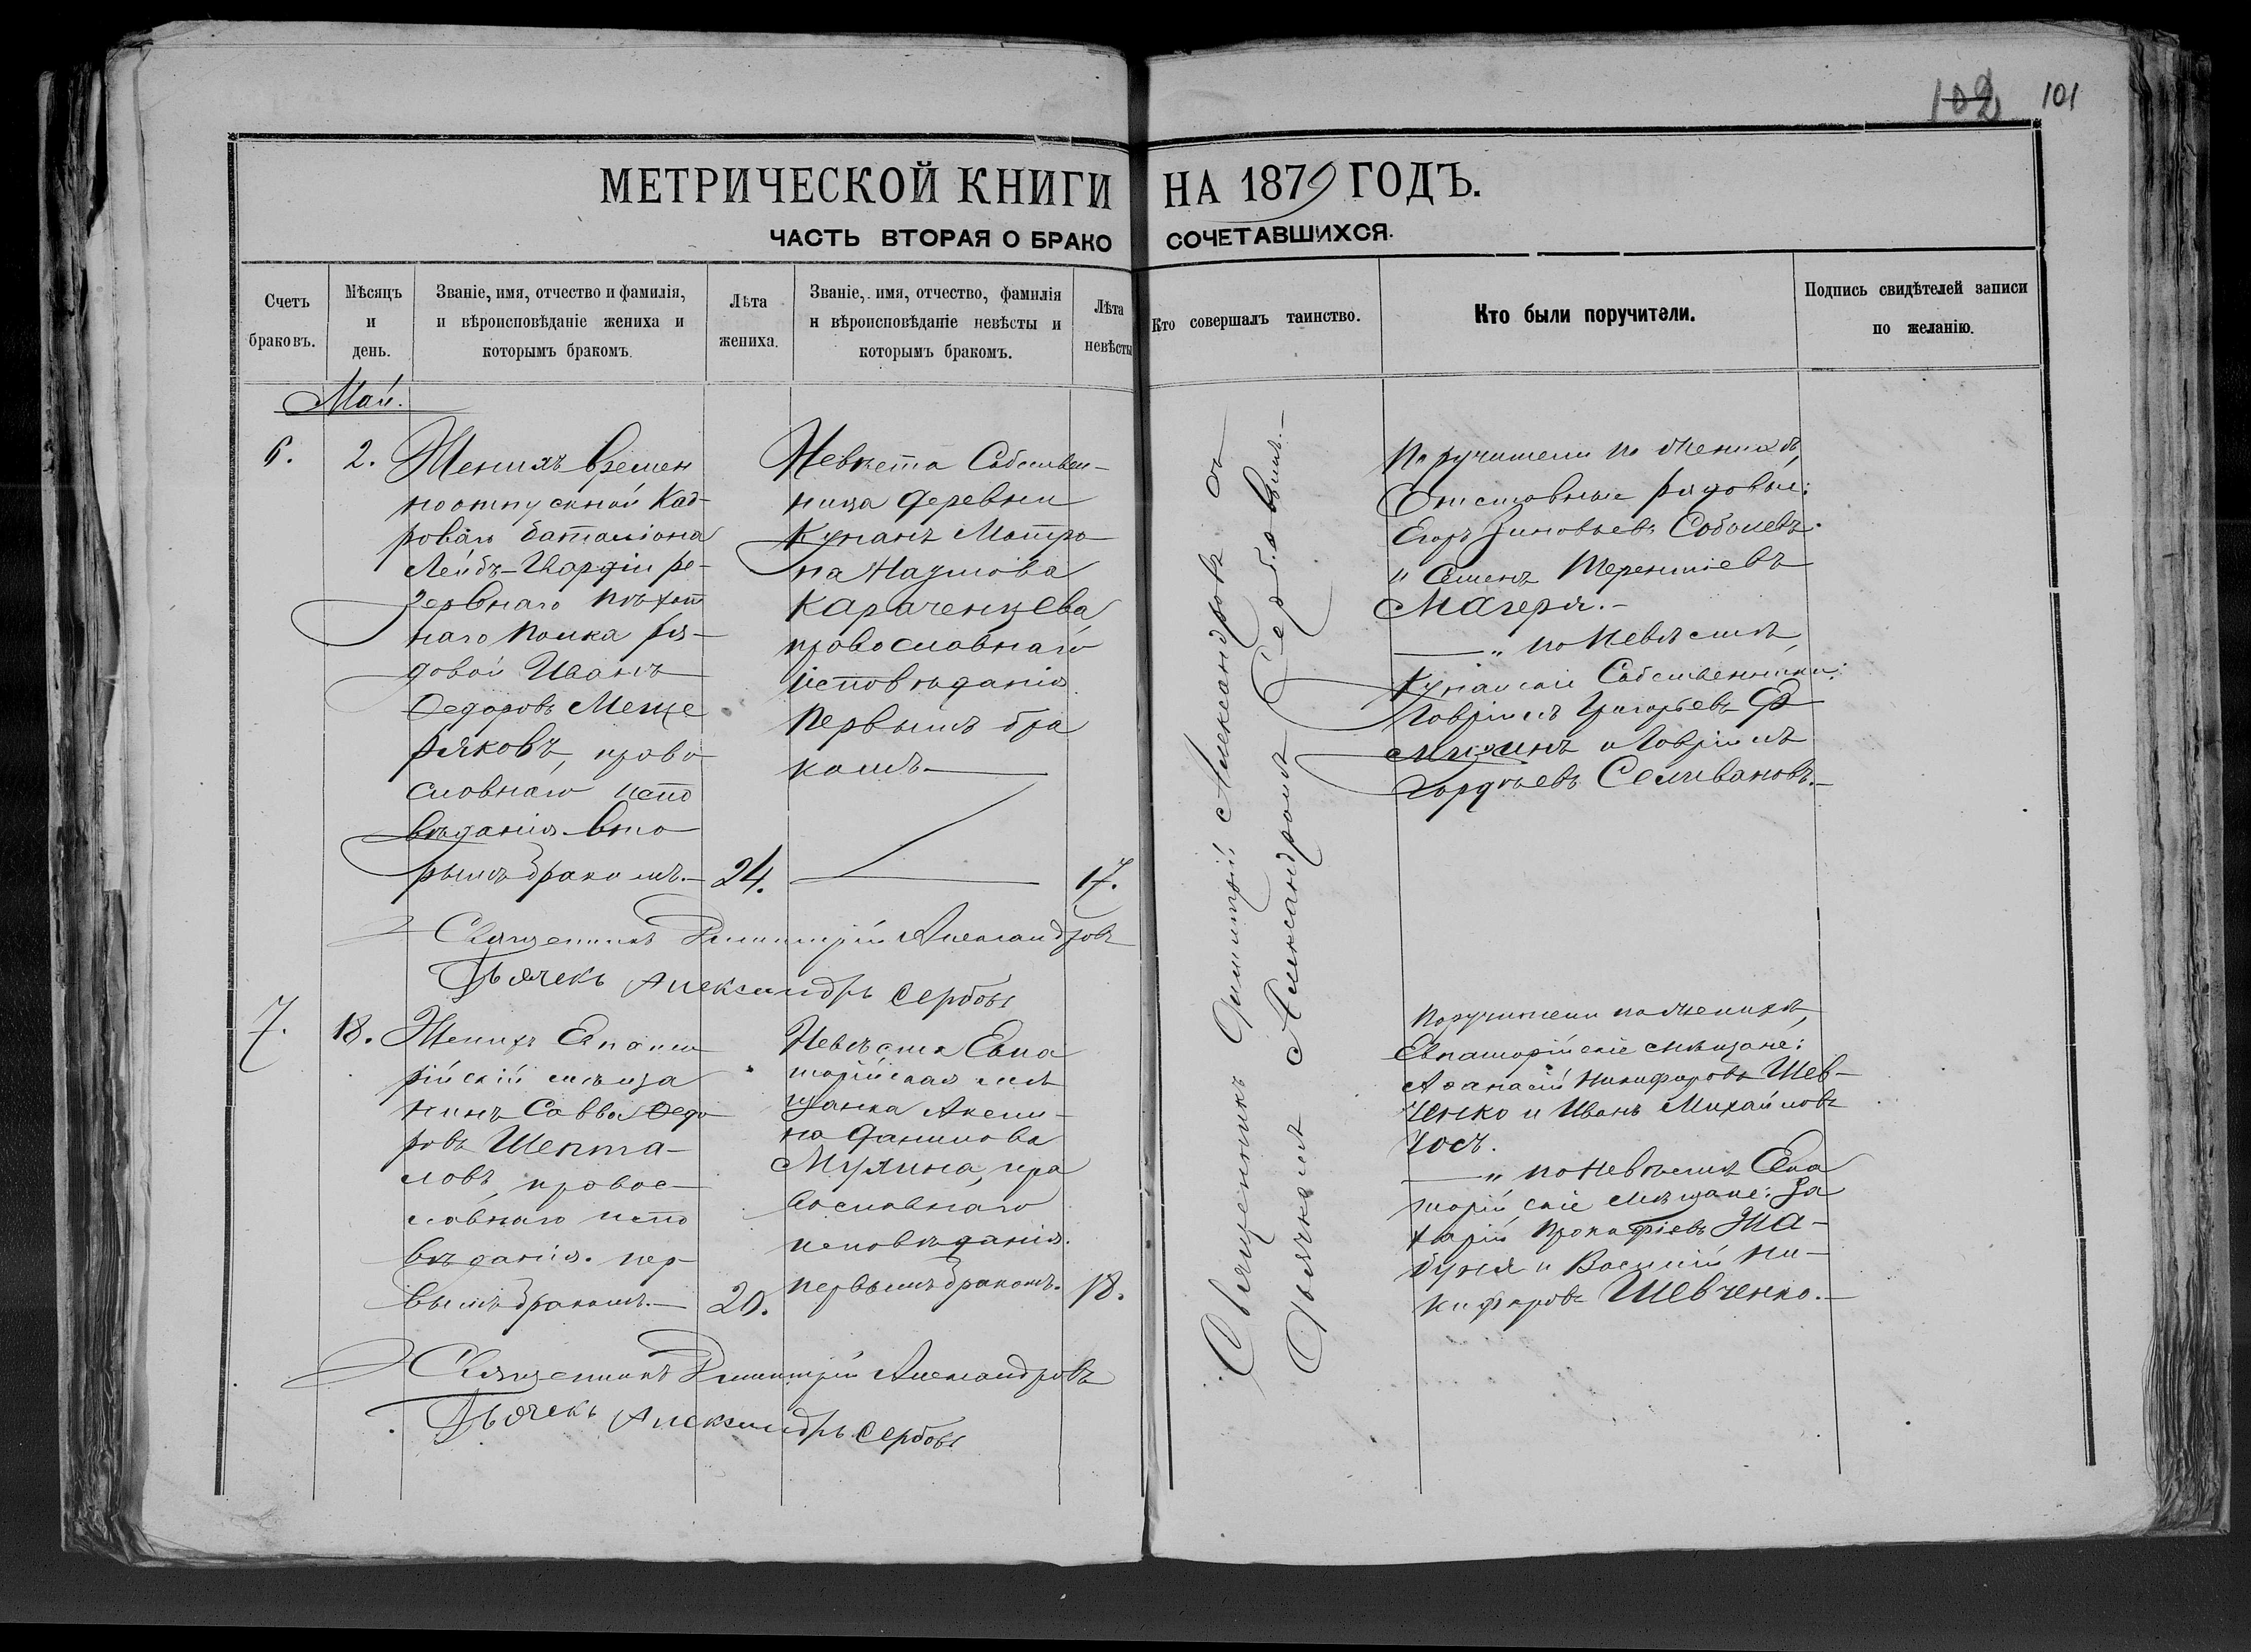 102 101
МЕТРИЧЕСКОЙ КНИГИ НА 1879 ГОДЪ.
ЧАСТЬ ВТОРАЯ О БРАКО СОЧЕТАВШИХСЯ.
Счетъ
браковъ.
Мѣсяцъ
и
день.
Званіе, имя, отчество и фамилія,
и вѣроисповѣданіе жениха и
которымъ бракомъ.
Лѣта
жениха.
Званіе, имя, отчество, фамилія
и вѣроисповѣданіе невѣсты и
которымъ бракомъ.
Лѣта
невѣсты
Кто совершалъ таинство.
Кто были поручители.
Подпись свидѣтелей записи
по желанію.
Май.
6.
2.
Женихъ времен
ноотпускной Кад-
роваго баталіона
Лейбъ-Гвардіи ре-
зервнаго пѣхот
наго полка ря-
довой Иванъ
Ѳедоровъ Меще
ряковъ, право
славнаго испо
вѣданія. вто
рымъ бракомъ.
24.
Невѣста Собствен-
ница деревни
Кунанъ Матро
на Наумова
Караченцева
православнаго
исповѣданія
первымъ бра
комъ.
17.
Священникъ Димитрій Александровъ
Дьячекъ Александръ Сербовъ
Поручители по женихѣ,
Отставные рядовые:
Егоръ Зиновьевъ Соболевъ
и Семенъ Терентіевъ
Магеря.-
— „ по Невѣстѣ,
Кунанскіе Собственники:
Гавріилъ Григорьевъ
и Гавріилъ
Гордѣевъ Селивановъ.-
Священникъ Димитрій Александровъ съ
Дьячкомъ Александромъ Сербовымъ.-
7.
18.
Женихъ Евпато
рійскій мѣща
нинъ Савва Ѳедо
ровъ Шепта-
ловъ, правос-
лавнаго испо
вѣданія. пер-
вымъ бракомъ.
20.
Невѣста Евпа
торійская мѣ
щанка Акели-
на Данилова
Мухина, пра
вославнаго
исповѣданія.
первымъ бракомъ.
18.
Священникъ Димитрій Александровъ
Дьячекъ Александръ Сербовъ
Поручители по женихѣ,
Евпаторійскіе мѣщане:
Аѳанасій Никифоровъ Шев-
ченко и Иванъ Михайловъ
Чосъ.
— „ по Невѣстѣ Евпа
торійскіе мѣщане: За
харій Прокофіевъ Жа-
буня и Василій Ни-
кифоровъ Шевченко.-